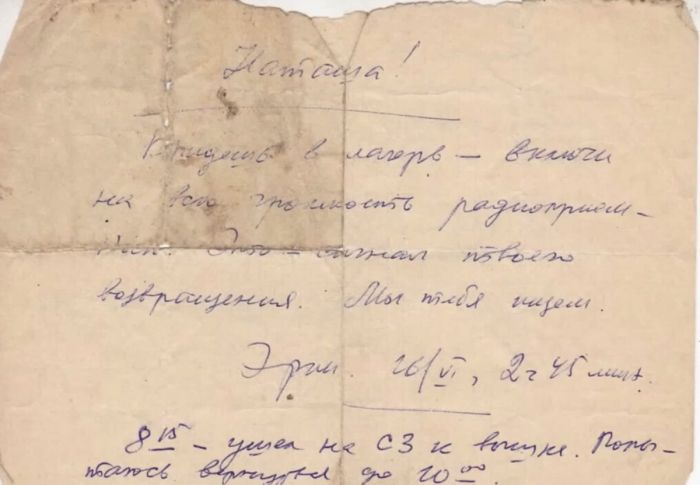 Наташа!
Придешь в лагерь — включи
на всю громкость радиоприем-
ник. Это – сигнал твоего
возвращения. Мы тебя ищем.
Эрик. 16/VI, 2 ч 45 мин.
8 15 – ушел на СЗ к вышке. Попы-
таюсь вернуться до 10 00.